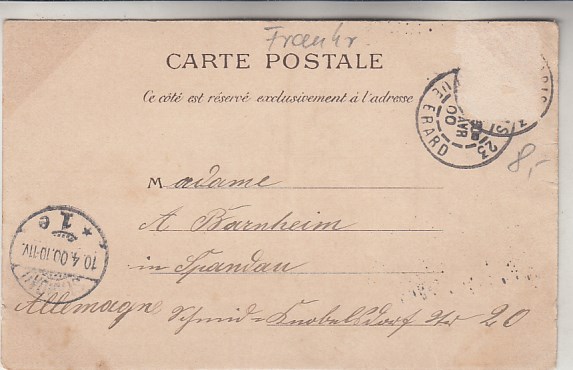 Frankr.
CARTE POSTALE
Ce côté est réservé exclusivement à l'adresse
PARIS
23
AVR
00
ERARD
8,-
Madame
A Barnheim
in Spandau
Allemagne Schmid-Knobelsdorf Str 20
* 1 e *
10.4.00.10-11V.